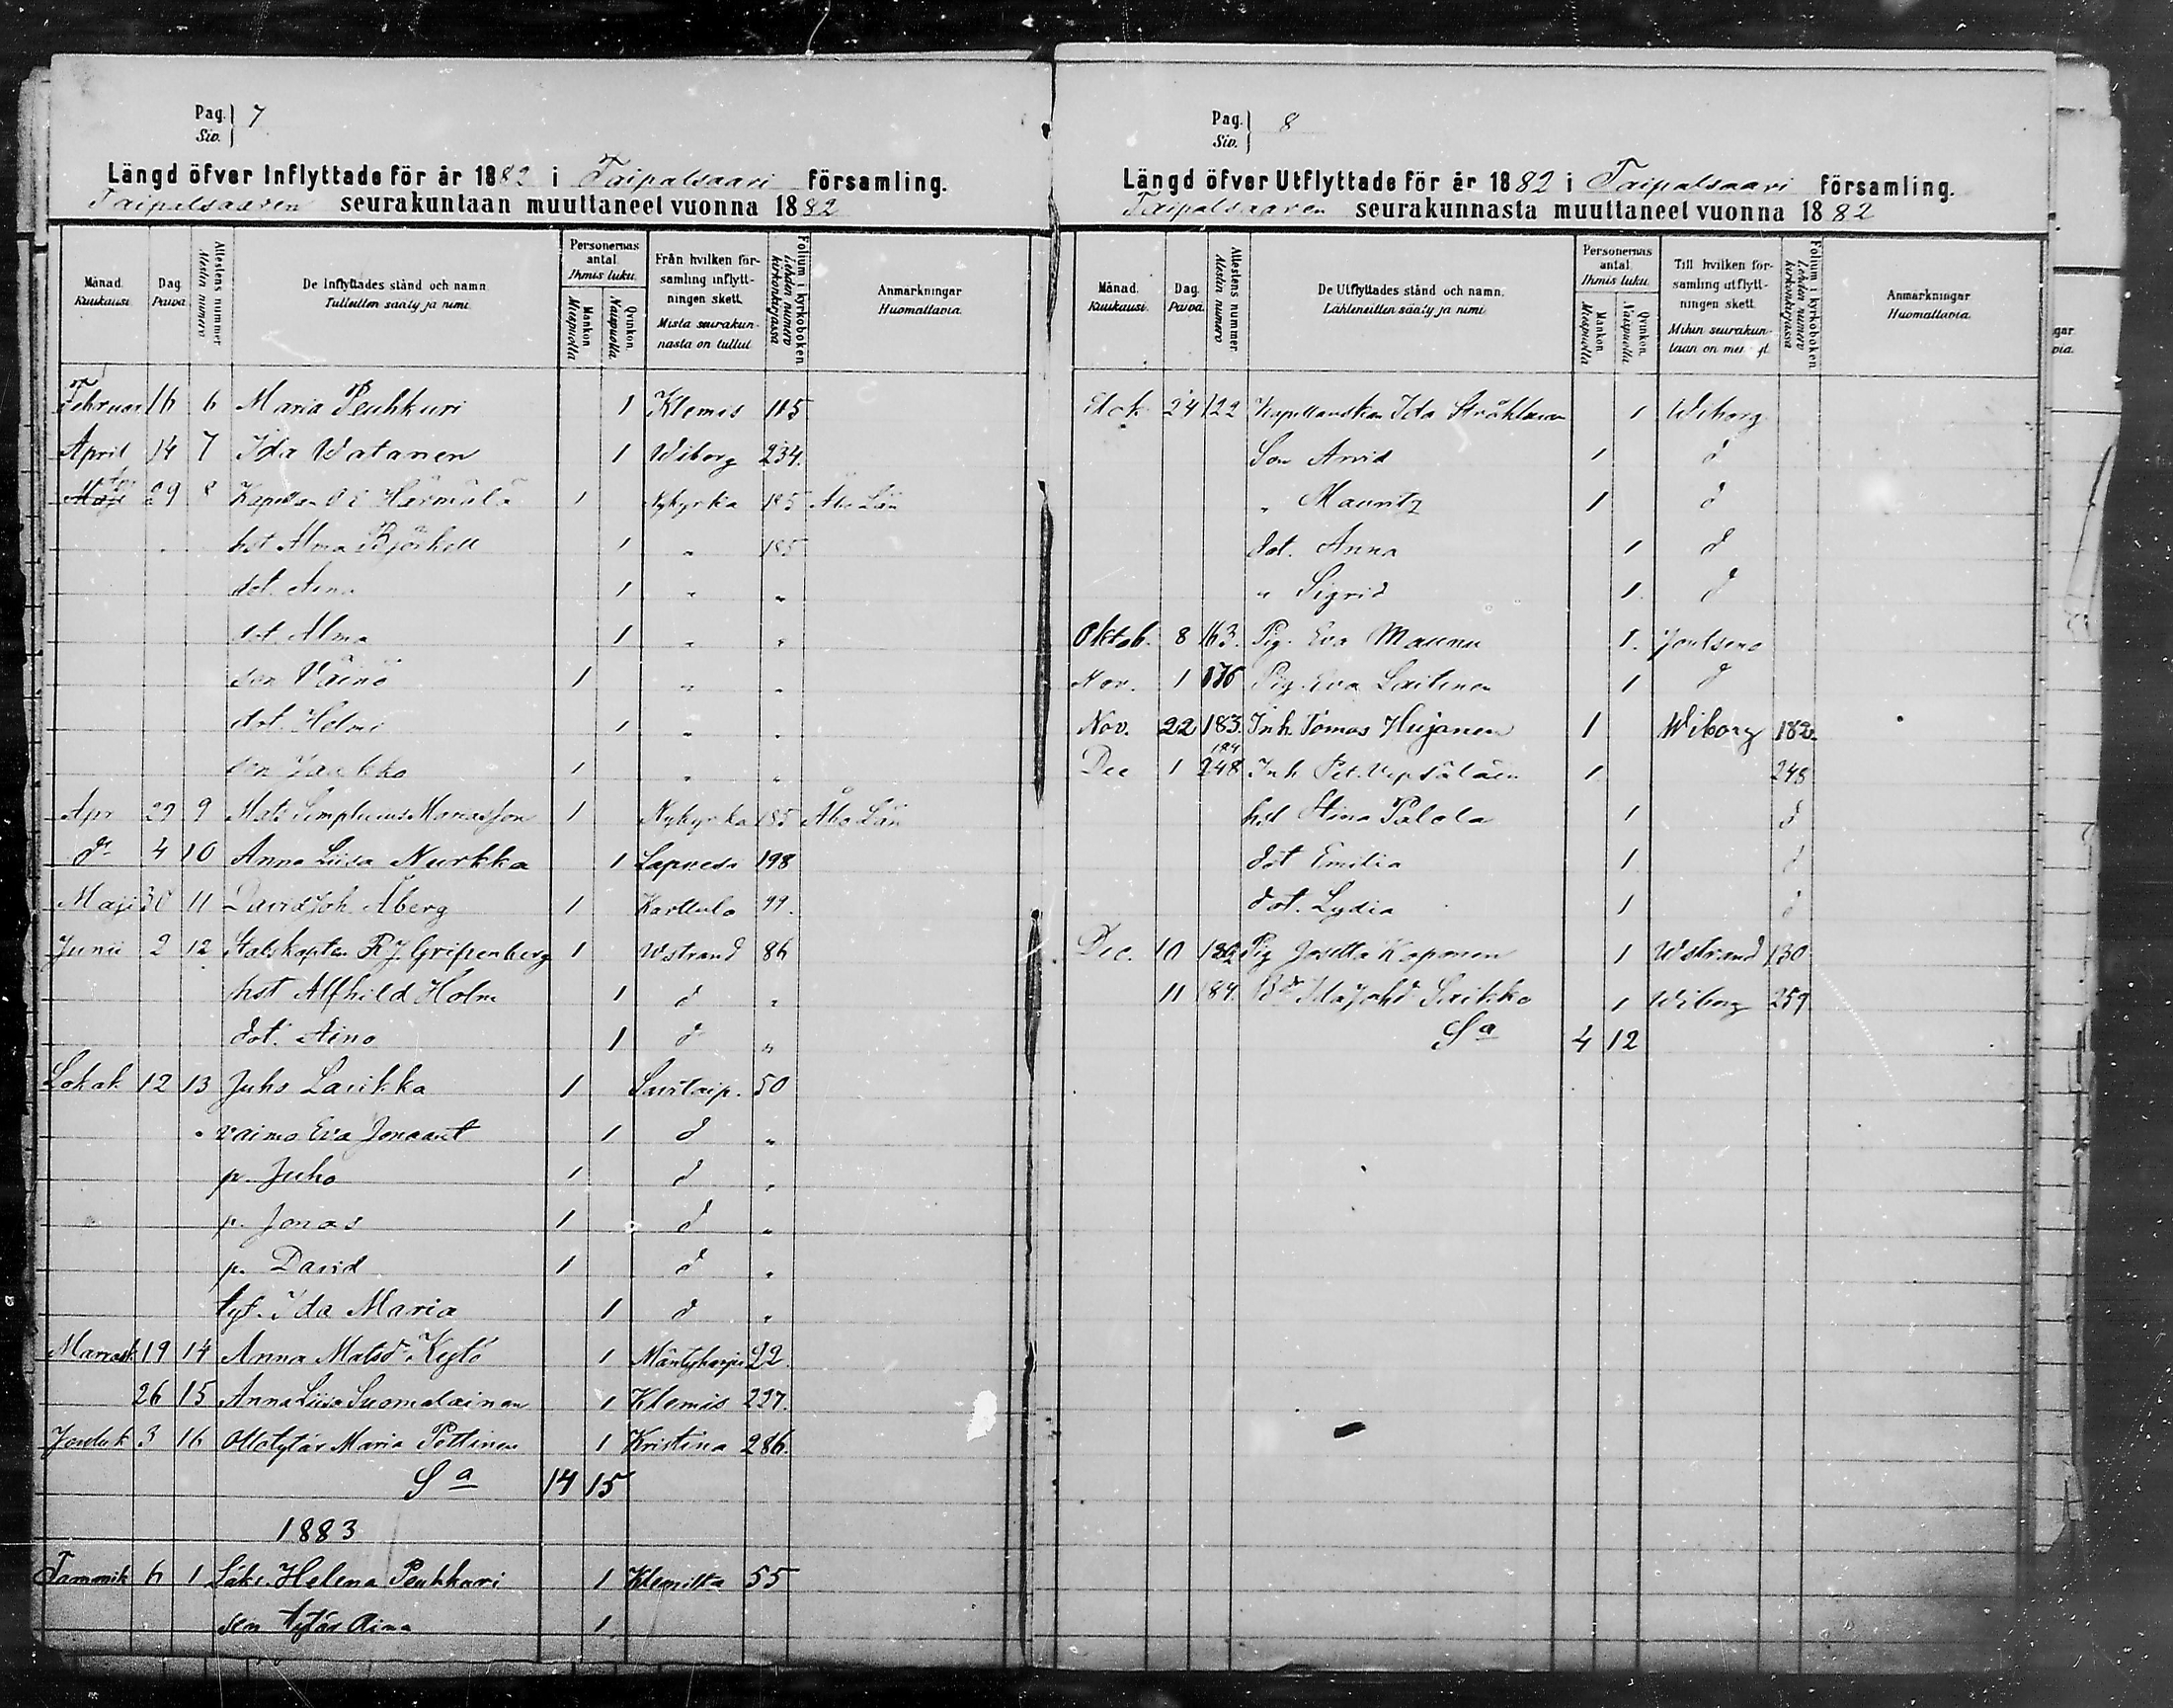 Pag. Siv. } 7
Längd öfver Inflyttade för år 1882 i Taipalsaari församling.
Taipalsaaren seurakuntaan muuttaneet vuonna 1882
Månad. Kuukausi. | Dag. Päivä. | Attestens nummer Atestin numero | De Inflyttades stånd och namn. Tulleitten sääty ja nimi. | Personernas antal. Ihmis luku. Mankön. Miespuolia Qvinkön. Naispuolia. | Från hvilken församling inflyttningen skett. Mistä seurakunnasta on tullut. | Folium i kyrkoboken Lehden numero kirkonkirjassa | Anmärkningar Huomattavia.
Februar 16 6 Maria Peuhkuri 1 Klemis 115
April 14 7 Ida Watanen 1 Wiborg 234.
Maji Apr 29 8 Kapellan Härmälä 1 Nykyrka 185 Åbo Län
hst Alma Björkell 1 " 185
dot. Aina 1 " "
dot. Alma 1 " "
son Väinö 1 " "
dot. Helmi 1 " "
son Jaakko 1 " "
Apr 29 9 Mats Simplicius Mariasson 1 Nykyrka 185 Åbo Län
do 4 10 Anna Liisa Nurkka 1 Lapvesi 198
Maji 30 11 David Joh. Åberg 1 Karttula 99.
Junii 2 12 Stabskapten R J. Gripenberg 1 Wstrand 86
hst Alfhild Holm 1 d "
dot. Aino 1 d "
Lokak 12 13 Juho Laukka 1 Savitaip. 50
" vaimo Eva Jonaant 1 d "
p. Juho 1 d "
p. Jonas 1 d "
p. David 1 d "
tyt. Ida Maria 1 d "
Marrask 19 14 Anna Matsdr Kejlö 1 Mäntyharju 22.
26 15 Anna Liisa Suomalainen 1 Klemis 227.
Jouluk 3 16 Ottotytär Maria Pöttinen 1 Kristina 286.
Sa 14 15
1883
Tammik 6 1 Helena Peuhkuri 1 Klemiltä 55
sen tytär Aina 1
Pag. Siv. } 8
Längd öfver Utflyttade för år 1882 i Taipalsaari församling.
Taipalsaaren seurakunnasta muuttaneet vuonna 1882
Månad. Kuukausi. | Dag. Päivä. | Attestens nummer. Atestin numero | De Utflyttades stånd och namn. Lähteneitten sääty ja nimi. | Personernas antal. Ihmis luku. Mankön. Miespuolia Qvinkön. Naispuolia | Till hvilken församling utflyttningen skett. Mihin seurakuntaan on | Folium i kyrkoboken Lehden numero kirkonkirjassa | Anmärkningar Huomattavia.
24 122 Kapellanskan Ida Ståhlman 1 Wiborg
Son Arvid 1 d
" Mauritz 1 d
dot. Anna 1 d
" Sigrid 1 d
Oktob. 8 163. Pig. Eva Maunu 1. Joutseno
Nov. 1 176 Pig. Eva Laitinen 1 d
Nov. 22 183. Inh. Tomas Hujanen 1 Wiborg 182.
Dec 1 184 248 Inh Pet. Vepsäläin 1 248
hst Stina Palola 1 d
dot Emilia 1 d
dot. Lydia 1 d
Dec. 10 186 Pig Josetta Kaponen 1 Wstrand 130
11 187. Ida Johd Saikko 1 Wiborg 259.
Sa 4 12